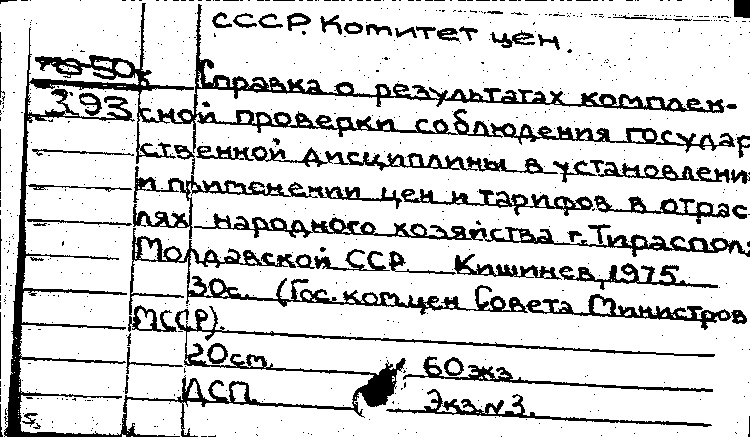 СССР. Комитет цен.
78-50к Справка о результатах комплек-
393 сной проверки соблюдения государ
ственной дисциплины в установлени
и применении цен и тарифов в отрас
лях народного хозяйства г. Тираспол
Молдавской ССР Кишинев, 1975.
30с. (Гос. ком. цен Совета Министров
МССР).
20 ст. 60 экз.
ДСП. Экз. №3.